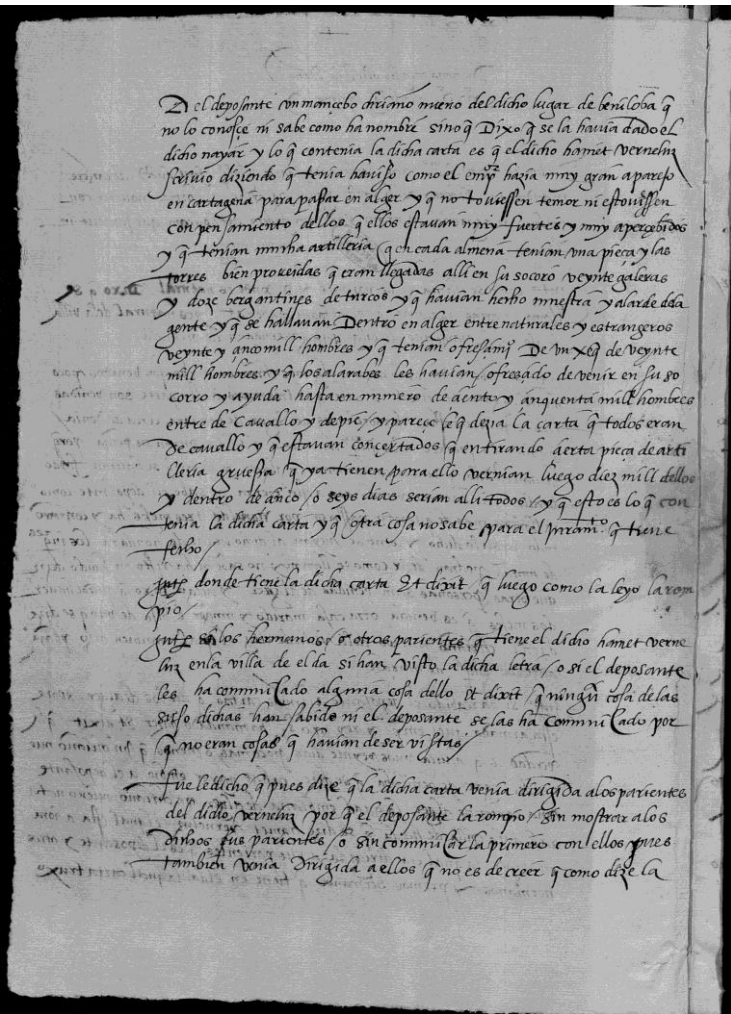 Del deposante un mançebo chriano nuevo del dicho lugar de beniloba q̃
no lo conosçe ni sabe como ha nombre sino q̃ Dixo q̃ se la havia dado el
dicho nayar y lo q̃ contenia la dicha carta es q̃ el dicho hamet verneluz
scrivio diziendo q̃ tenia haviso como el emp.or hazia muy gran aparejo
en cartagena para passar en alger y q̃ no toviessen temor ni estoviessen
con pensamiento dellos q̃ ellos estavan muy fuertes y muy aperçebidos
y q̃ tenian mucha artilleria q̃ en cada almena tenian una pieça y las
torres bien proveidas q̃ eran llegadas alli en su socoro veynte galeras
y doze bergantines de turcos y q̃ havian hecho muestra y alarde dela
gente y q̃ se hallavan Dentro en alger entre naturales y estrangeros
veynte y çinco mill hombres y q̃ tenian De un xeq̃ de veynte
mill hombres y q̃ los alarabes les havian ofresçado de venir en su so
corro y ayuda hasta en numero de çiento y çinquenta mill hombres
entre de Cavallo y de pie / y pareçe le q̃ dezia la carta q̃ todos eran
de cavallo y q̃ estavan conçertados q̃ en tirando çierta pieça de arti
lleria gruessa q̃ ya tienen para ello vernian luego diez mill dellos
y dentro de çinco / o seys dias serian alli todos / y q̃ esto es lo q̃ con
tenia la dicha carta y q̃ otra cosa no sabe para el juram.to q̃ tiene
fecho /
donde tiene la dicha carta Et dixit q̃ luego como la leyo la rom
pio /
si los hermanos / o otros parientes q̃ tiene el dicho hamet verne
luz en la villa de elda si han visto la dicha letra / o si el deposante
les ha comunicado alguna cosa dello Et dixit q̃ ningũ cosa de las
suso dichas han sabido ni el deposante se las ha comunicado por
q̃ no eran cosas q̃ havian de ser vistas /
fue le dicho q̃ pues dize q̃ la dicha carta venia dirigida a los parientes
del dicho verneluz por q̃ el deposante la rompio / sin mostrar a los
dichos sus parientes / o sin comunicar la primero con ellos pues
tambien venia Dirigida a ellos q̃ no es de creer q̃ como dize la